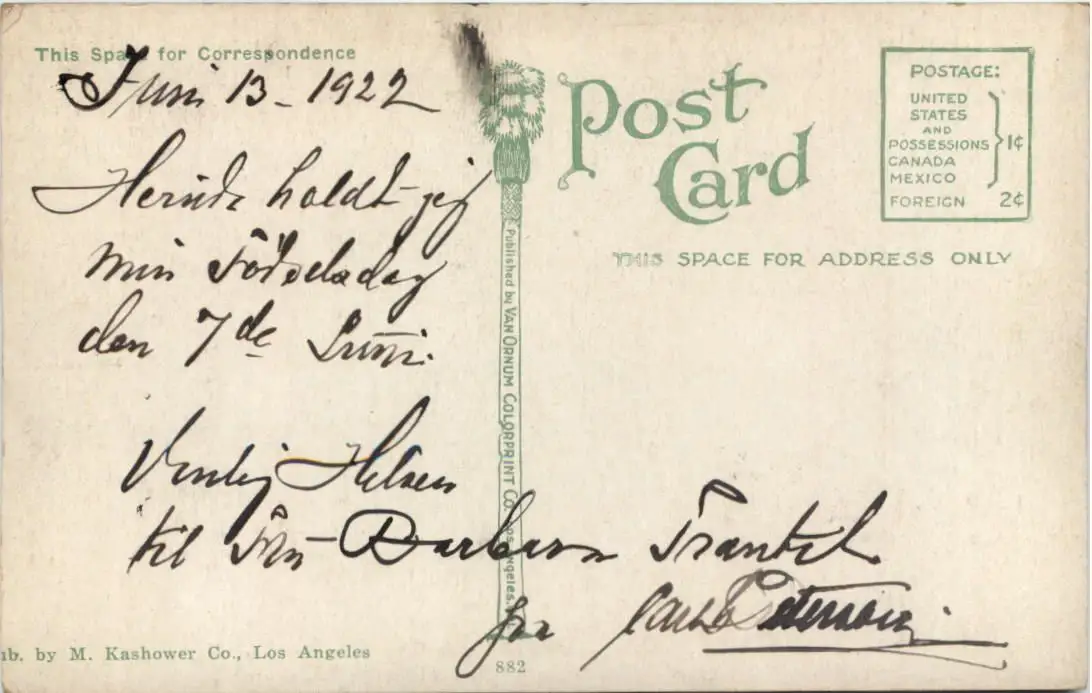 This Space for Correspondence
Juni 13 - 1922
holdt jeg
min Födselsdag
den 7de Juni.
Venlig Hilsen
til Fru Barbara
for Peterson
Post
Card
POSTAGE:
UNITED
STATES
AND
POSSESSIONS
CANADA
MEXICO
1¢
FOREIGN 2¢
THIS SPACE FOR ADDRESS ONLY
Published by VAN ORNUM COLORPRINT CO., Los Angeles.
ub. by M. Kashower Co., Los Angeles
882